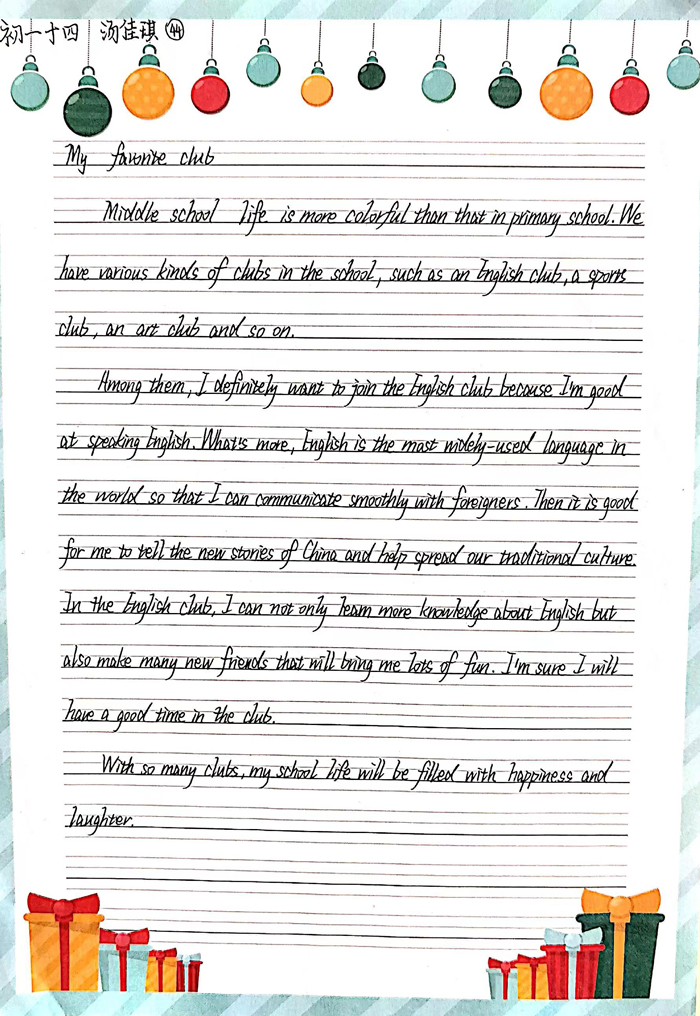 初一十四 汤佳琪 44
My favorite club
Middle school life is more colorful than that in primary school. We
have various kinds of clubs in the school, such as an English club, a sports
club, an art club and so on.
Among them, I definitely want to join the English club because I'm good
at speaking English. What's more, English is the most widely-used language in
the world so that I can communicate smoothly with foreigners. Then it is good
for me to tell the new stories of China and help spread our traditional culture.
In the English club, I can not only learn more knowledge about English but
also make many new friends that will bring me lots of fun. I'm sure I will
have a good time in the club.
With so many clubs, my school life will be filled with happiness and
laughter.